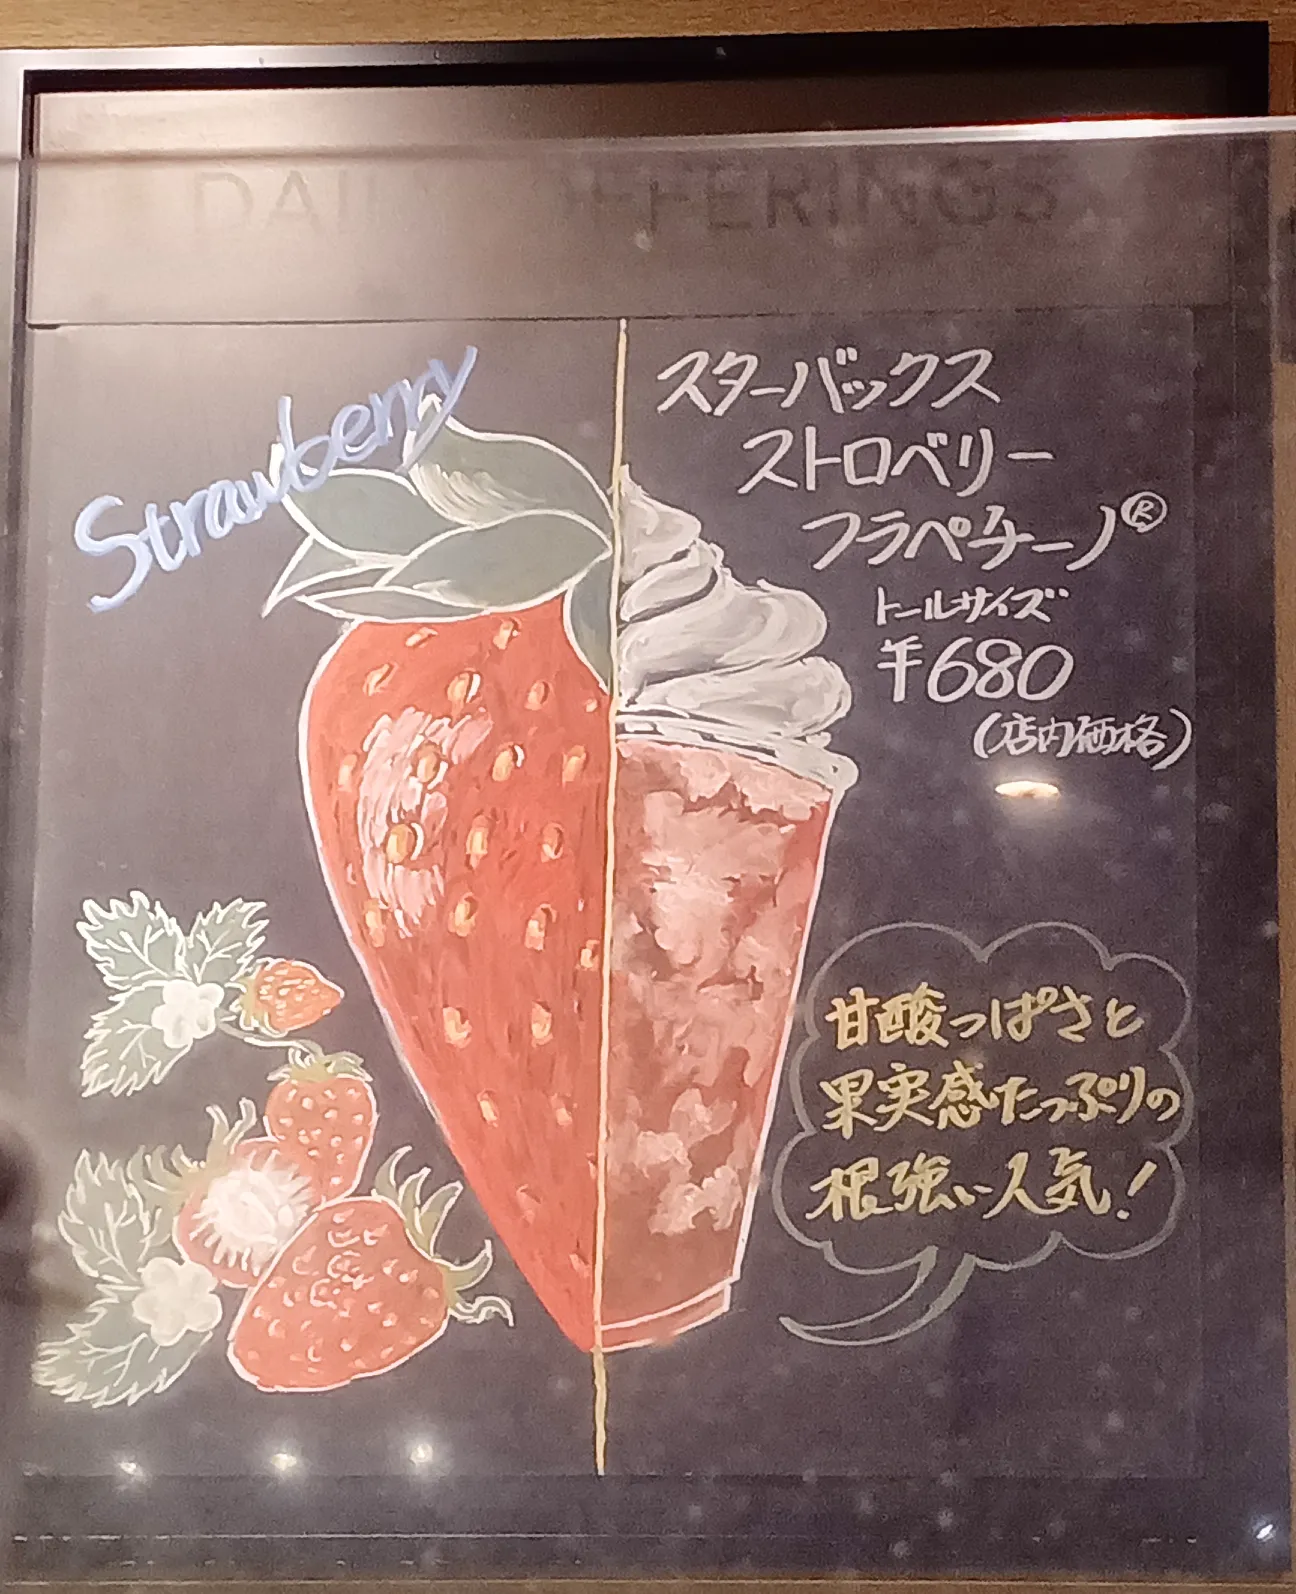 DAILY OFFERINGS
Strawberry
スターバックス
ストロベリー
フラペチーノ®
トールサイズ
¥680
(店内価格)
甘酸っぱさと
果実感たっぷりの
根強い人気!